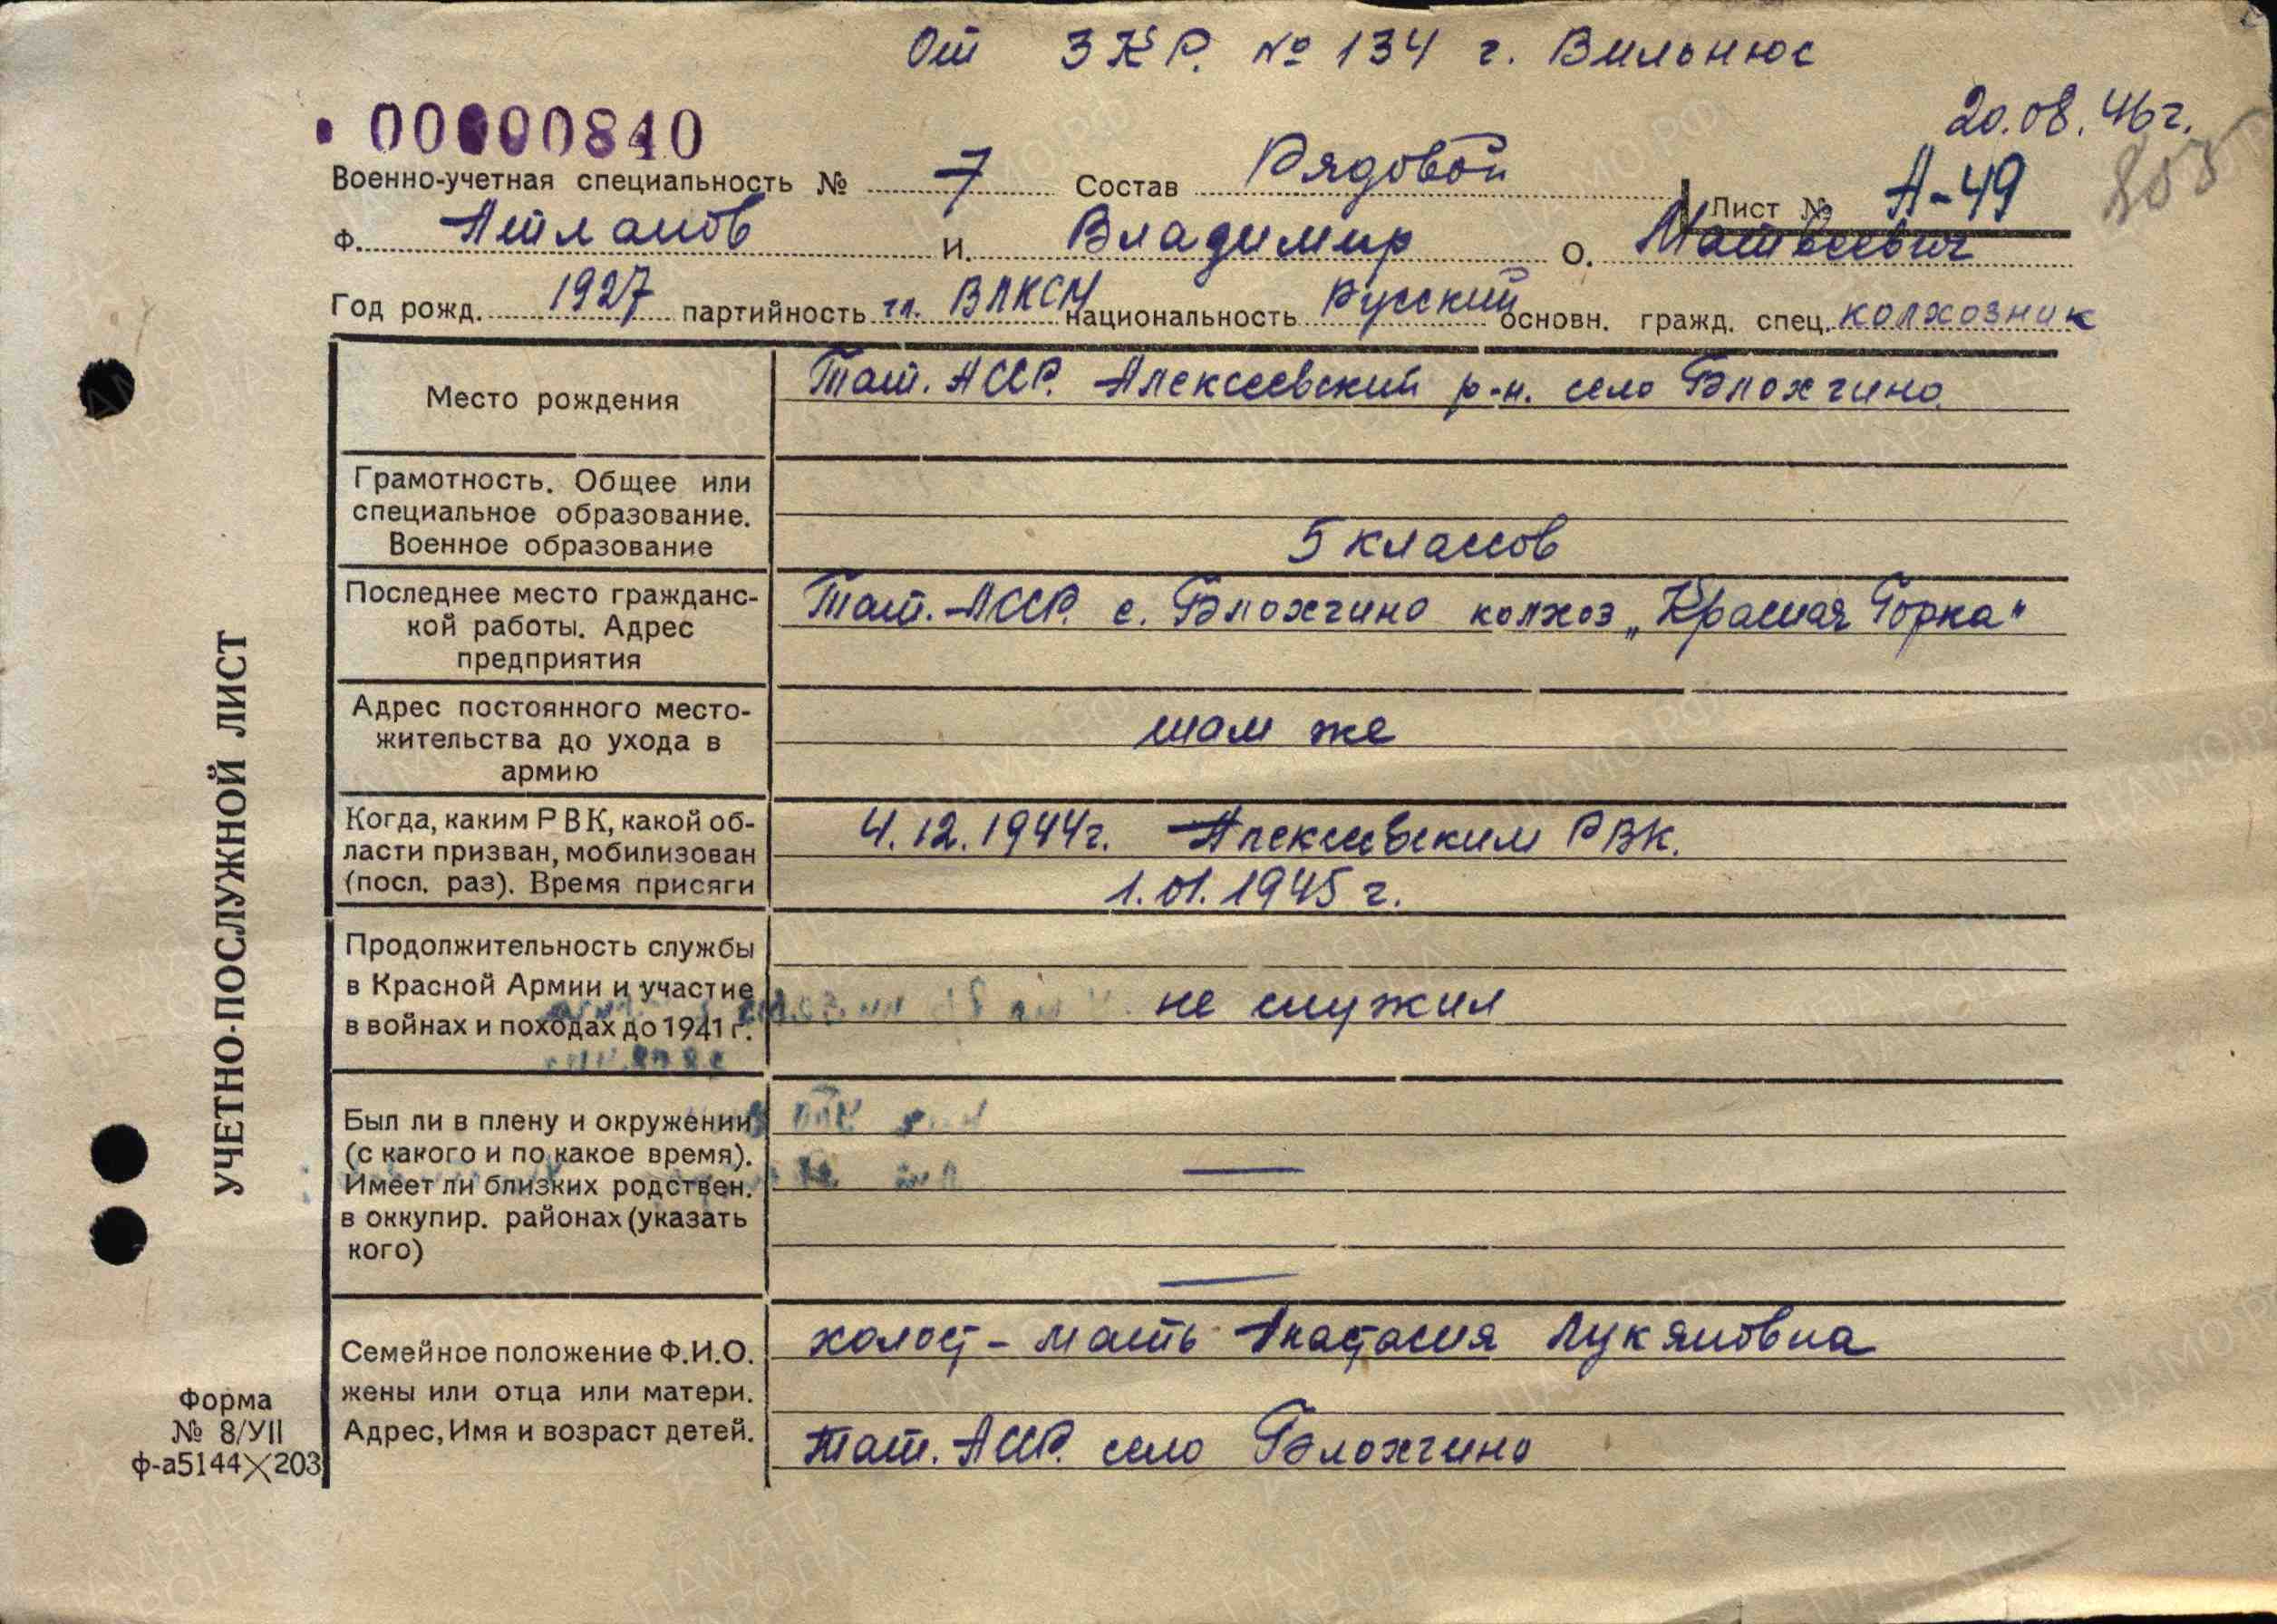 От ЗКР. № 134 г. Вильнюс
20.08.46 г.
00000840
Военно-учетная специальность № 7 Состав Рядовой Лист № А-49
Ф. Атланов И. Владимир О. Матвеевич
Год рожд. 1927 партийность чл. ВЛКСМ национальность Русский основн. гражд. спец. колхозник
Место рождения
Тат. АССР. Алексеевский р-н. село Блохчино
Грамотность. Общее или
специальное образование.
Военное образование
5 классов
Последнее место гражданс-
кой работы. Адрес
предприятия
Тат. АССР. с. Блохчино колхоз „Красная Горка"
Адрес постоянного место-
жительства до ухода в
армию
там же
Когда, каким РВК, какой об-
ласти призван, мобилизован
(посл. раз). Время присяги
4.12.1944г. Алексеевским РВК.
1.01.1945 г.
Продолжительность службы
в Красной Армии и участие
в войнах и походах до 1941 г.
не служил
Был ли в плену и окружении
(с какого и по какое время).
Имеет ли близких родствен.
в оккупир. районах (указать
кого)
—
—
Семейное положение Ф.И.О.
жены или отца или матери.
Адрес, Имя и возраст детей.
холост - мать Анастасия Лукяновна
Тат. АССР. село Блохчино
УЧЕТНО-ПОСЛУЖНОЙ ЛИСТ
Форма
№ 8/УII
ф-а5144×203